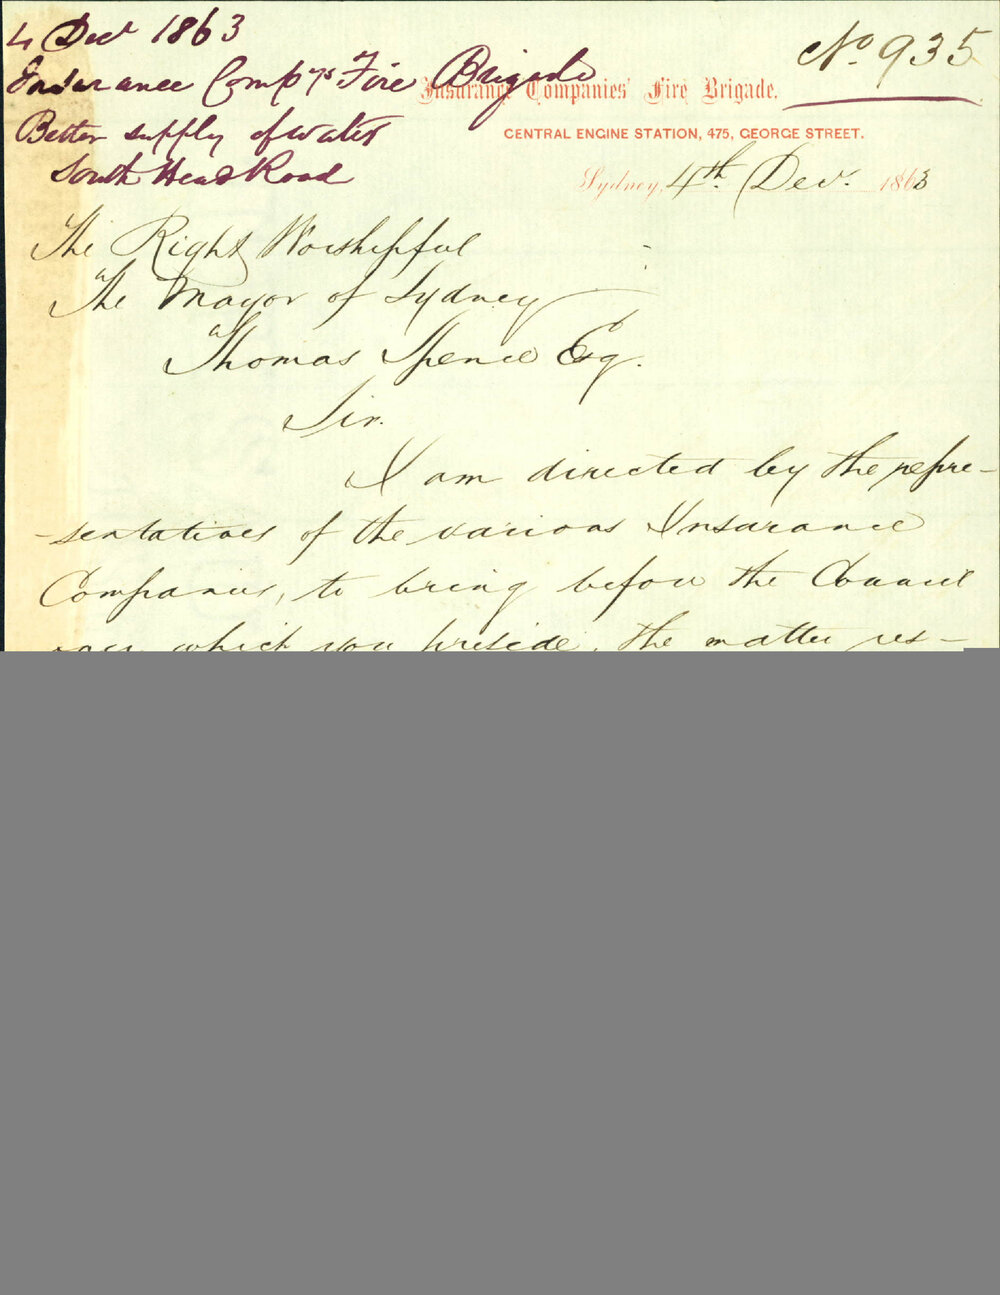 4 Decr 1863
Insurance Compys Fire Brigade
Better supply of water
South Head Road
No. 935
Insurance Companies' Fire Brigade.
CENTRAL ENGINE STATION, 475, GEORGE STREET.
Sydney, 4th. Decr. 1863
The Right Worshipful
The Mayor of Sydney
Thomas Spence Esq.
Sir.
I am directed by the repre-
-sentatives of the various Insurance
Companies, to bring before the Council
over which you preside, the matter res-